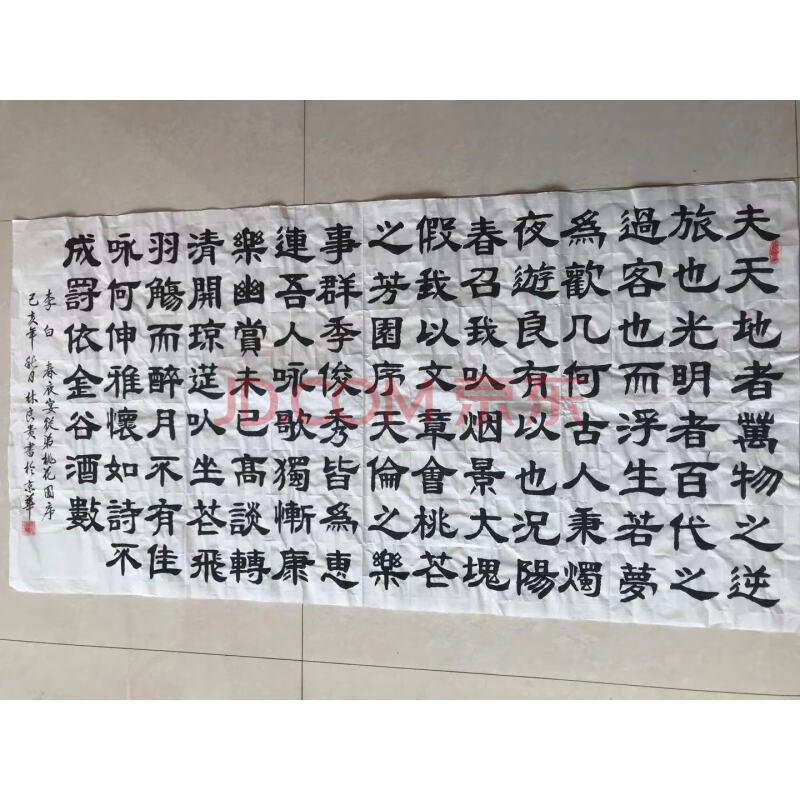 夫天地者萬物之逆
旅也光明者百代之
過客也而浮生若夢
為歡几何古人秉燭
夜遊良有以也況陽
春召我㕥烟景大塊
假我以文章會桃芒
之芳園序天倫之樂
事群季俊秀皆為惠
連吾人咏歌獨慚康
樂幽賞未已高談轉
清開琼筵㕥坐芒飛
羽觴而醉月不有佳
咏何伸雅懷如詩不
成罰依金谷酒數
李白 春夜宴從弟桃花園序
己亥年秋月林良貴書於京華
JD.COM 京东